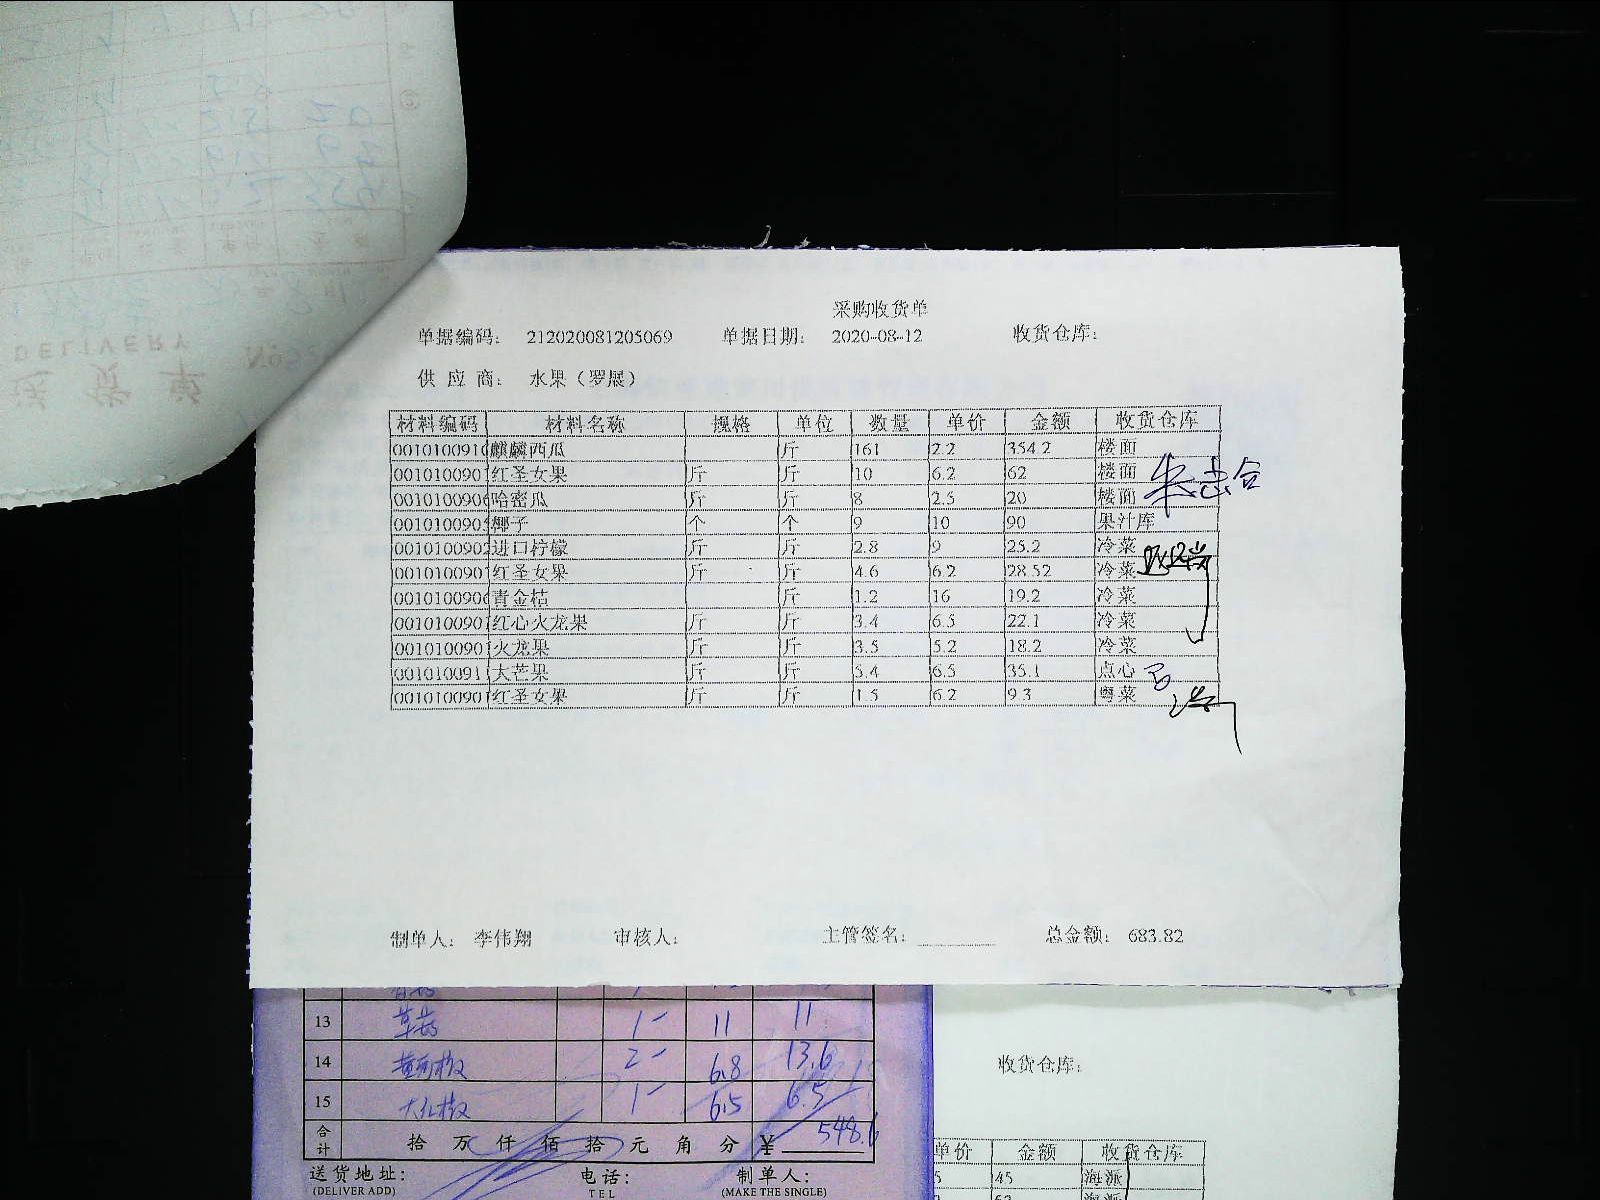 DELIVERY
送 货 单
采购收货单
单据编码: 212020081205069 单据日期: 2020-08-12 收货仓库:
供 应 商: 水果（罗展）
材料编码 材料名称 规格 单位 数量 单价 金额 收货仓库
001010091 麒麟西瓜 斤 161 2.2 354.2 楼面
001010090 红圣女果 斤 斤 10 6.2 62 楼面
001010090 哈密瓜 斤 斤 8 2.5 20 楼面
001010090 椰子 个 个 9 10 90 果汁库
001010090 进口柠檬 斤 斤 2.8 9 25.2 冷菜
001010090 红圣女果 斤 斤 4.6 6.2 28.52 冷菜
001010090 青金桔 斤 1.2 16 19.2 冷菜
001010090 红心火龙果 斤 斤 3.4 6.5 22.1 冷菜
001010090 火龙果 斤 斤 3.5 5.2 18.2 冷菜
001010091 大芒果 斤 斤 5.4 6.5 35.1 点心
001010090 红圣女果 斤 斤 1.5 6.2 9.3 粤菜
制单人: 李伟翔 审核人: 主管签名: 总金额: 683.82
13 草莓 1- 11 11
14 黄西椒 2- 6.8 13.6
15 大红椒 1- 6.5 6.5
合计 拾 万 仟 佰 拾 元 角 分 ¥ 548.6
送货地址: 电话: 制单人:
(DELIVER ADD) TEL (MAKE THE SINGLE)
收货仓库:
单价 金额 收货仓库
5 45 海派